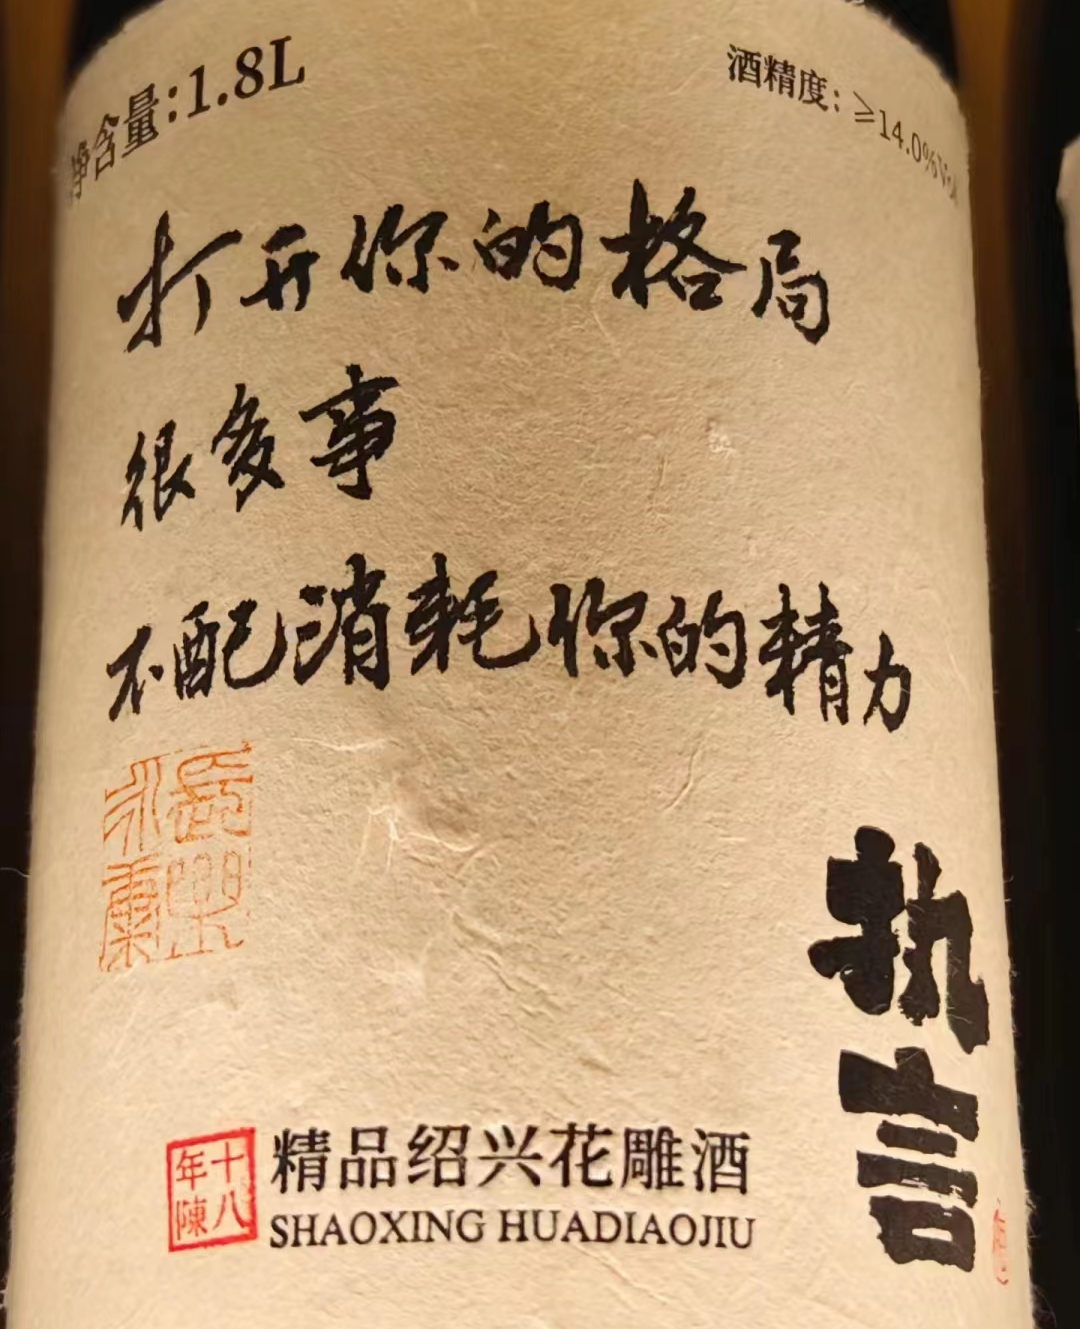 净含量:1.8L
酒精度: ≥14.0%Vol
打开你的格局
很多事
不配消耗你的精力
長樂
永康
执言
十八
年陳
精品绍兴花雕酒
SHAOXING HUADIAOJIU